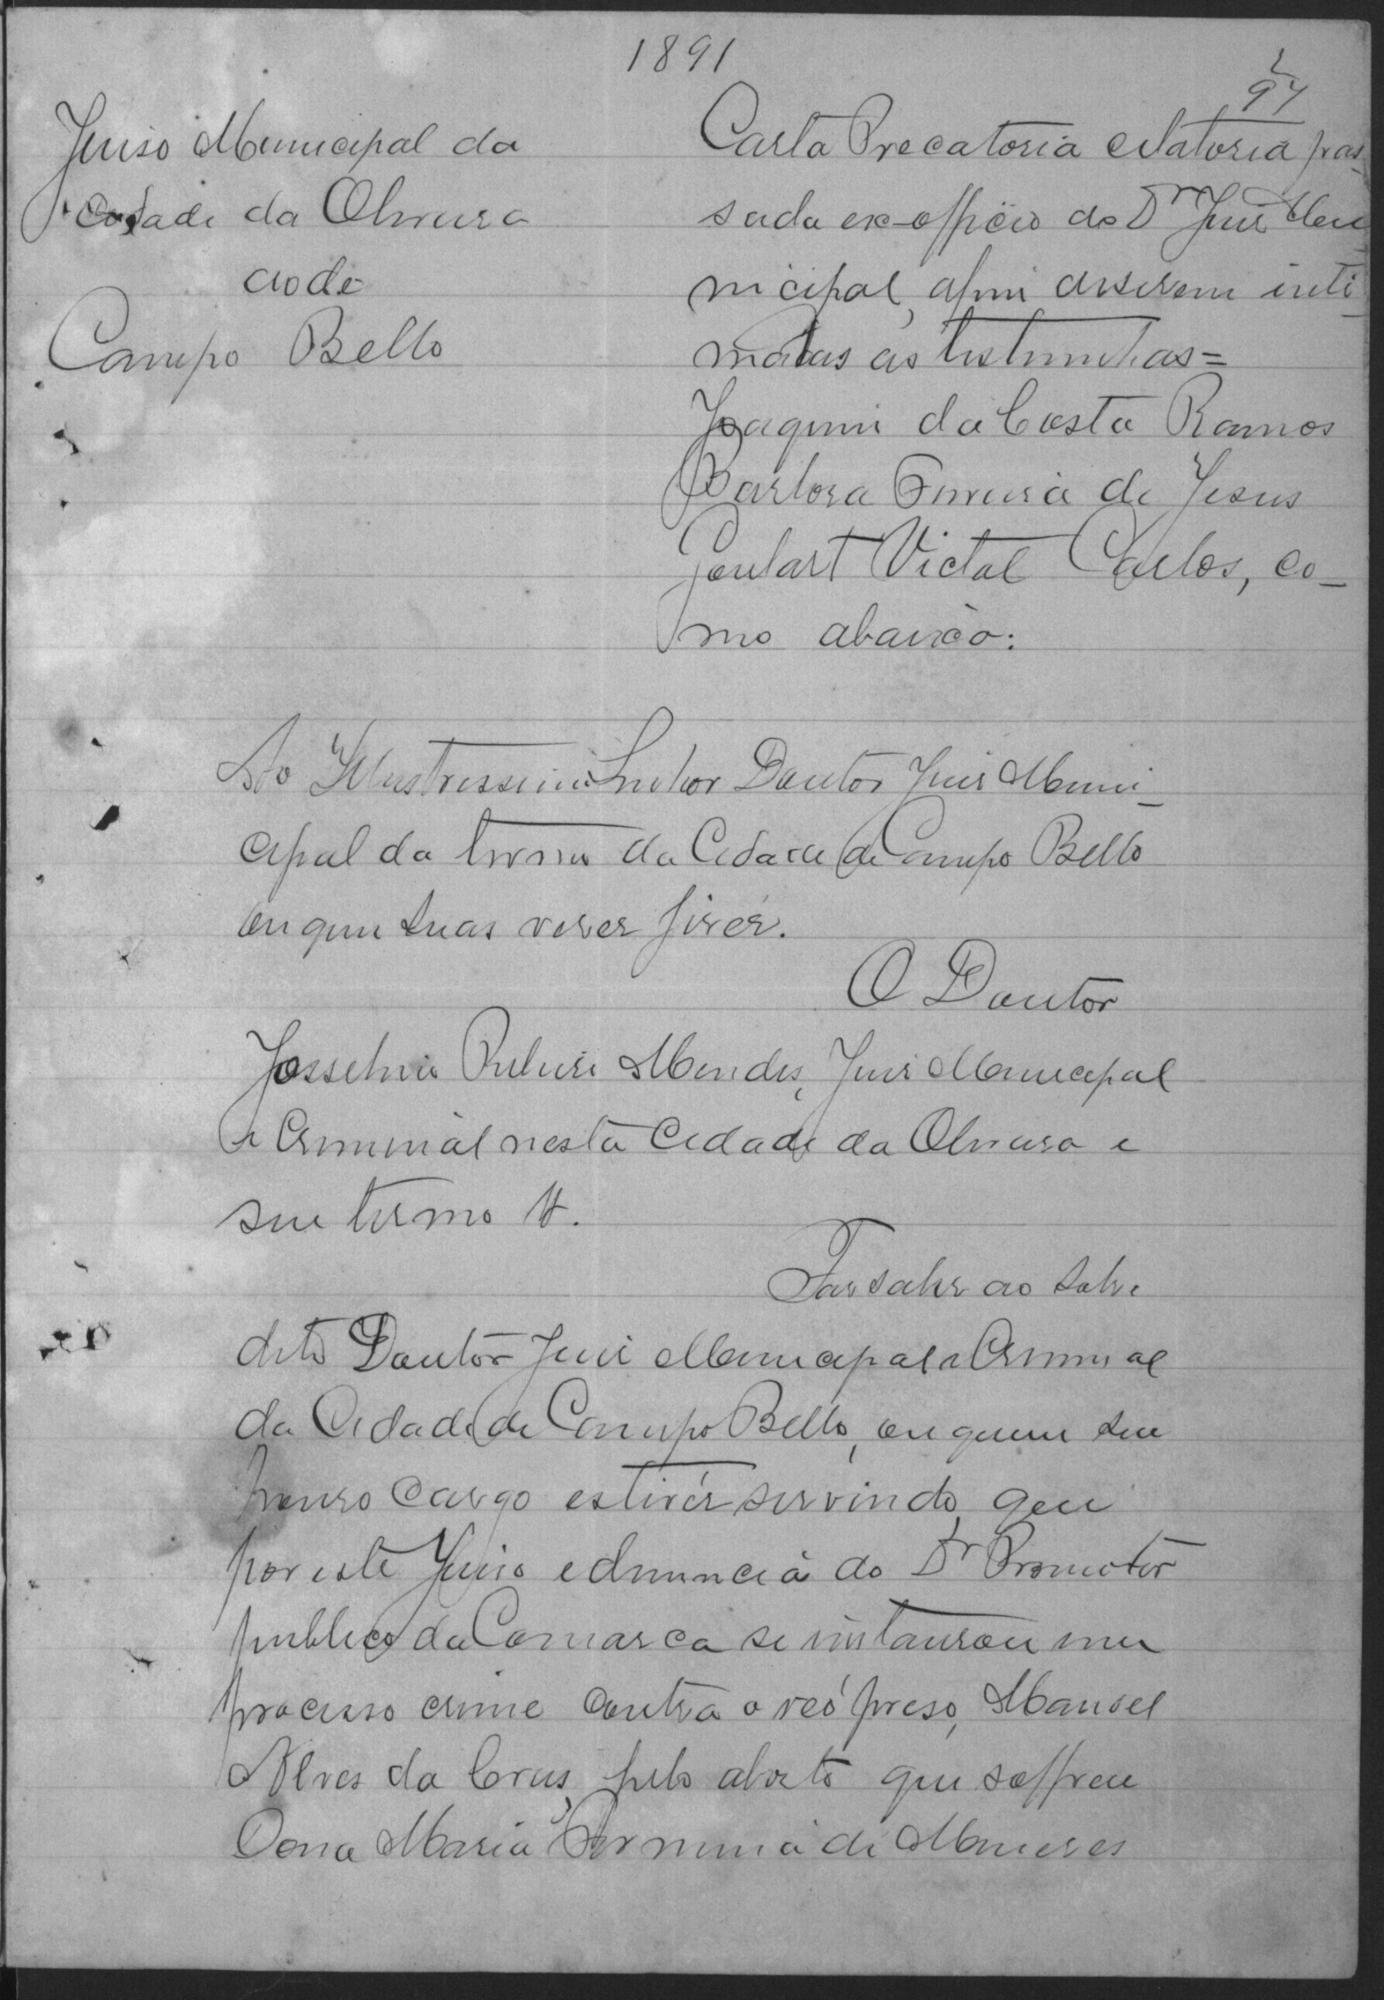 1891
97
Juiso Municipal da
Cidade da Oliveira
ao de
Campo Bello
Carta Precatoria citatoria pas-
sada ex-officio do Dr Juiz Mu-
nicipal, afim de serem inti-
madas as testimunhas=
Joaquim da Costa Ramos
Barbosa Ferreira de Jesus
Goulart Victal Carlos, co-
mo abaixo:
Ao Illustrissimo Senhor Doutor Juis Muni-
cipal do termo da Cidade de Campo Bello
ou quem suas veses fisér.
O Doutor
Josselino Mendes, Juis Municipal
e Criminal nesta Cidade da Oliveira e
seu termo &.
Faz saber ao sobre
dito Doutor Juiz Municipal e Criminal
da Cidade de Campo Bello, ou quem seu
honroso cargo estivér servindo, que
por este Juiso e denuncia do Dr Promotor
publico da Comarca se instaurou um
processo crime contra o réo preso, Manoel
Alves da Crus, pelo aborto que soffreu
Dona Maria Firmina de Meneses